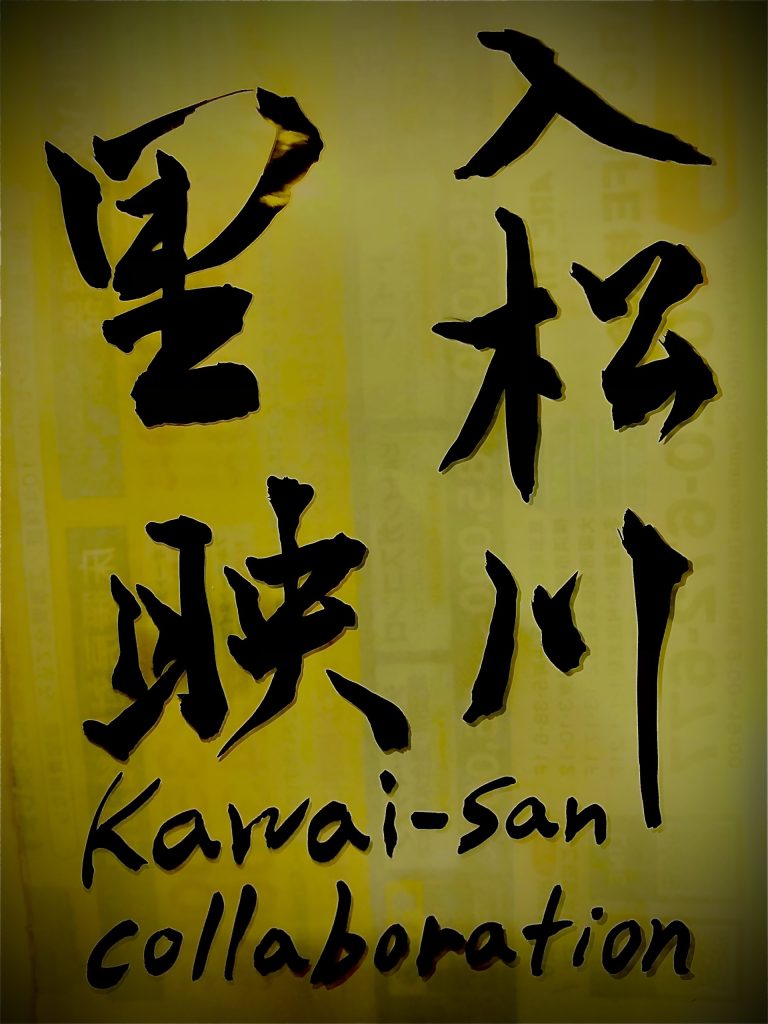 入松川
里映
Kawai-san
collaboration